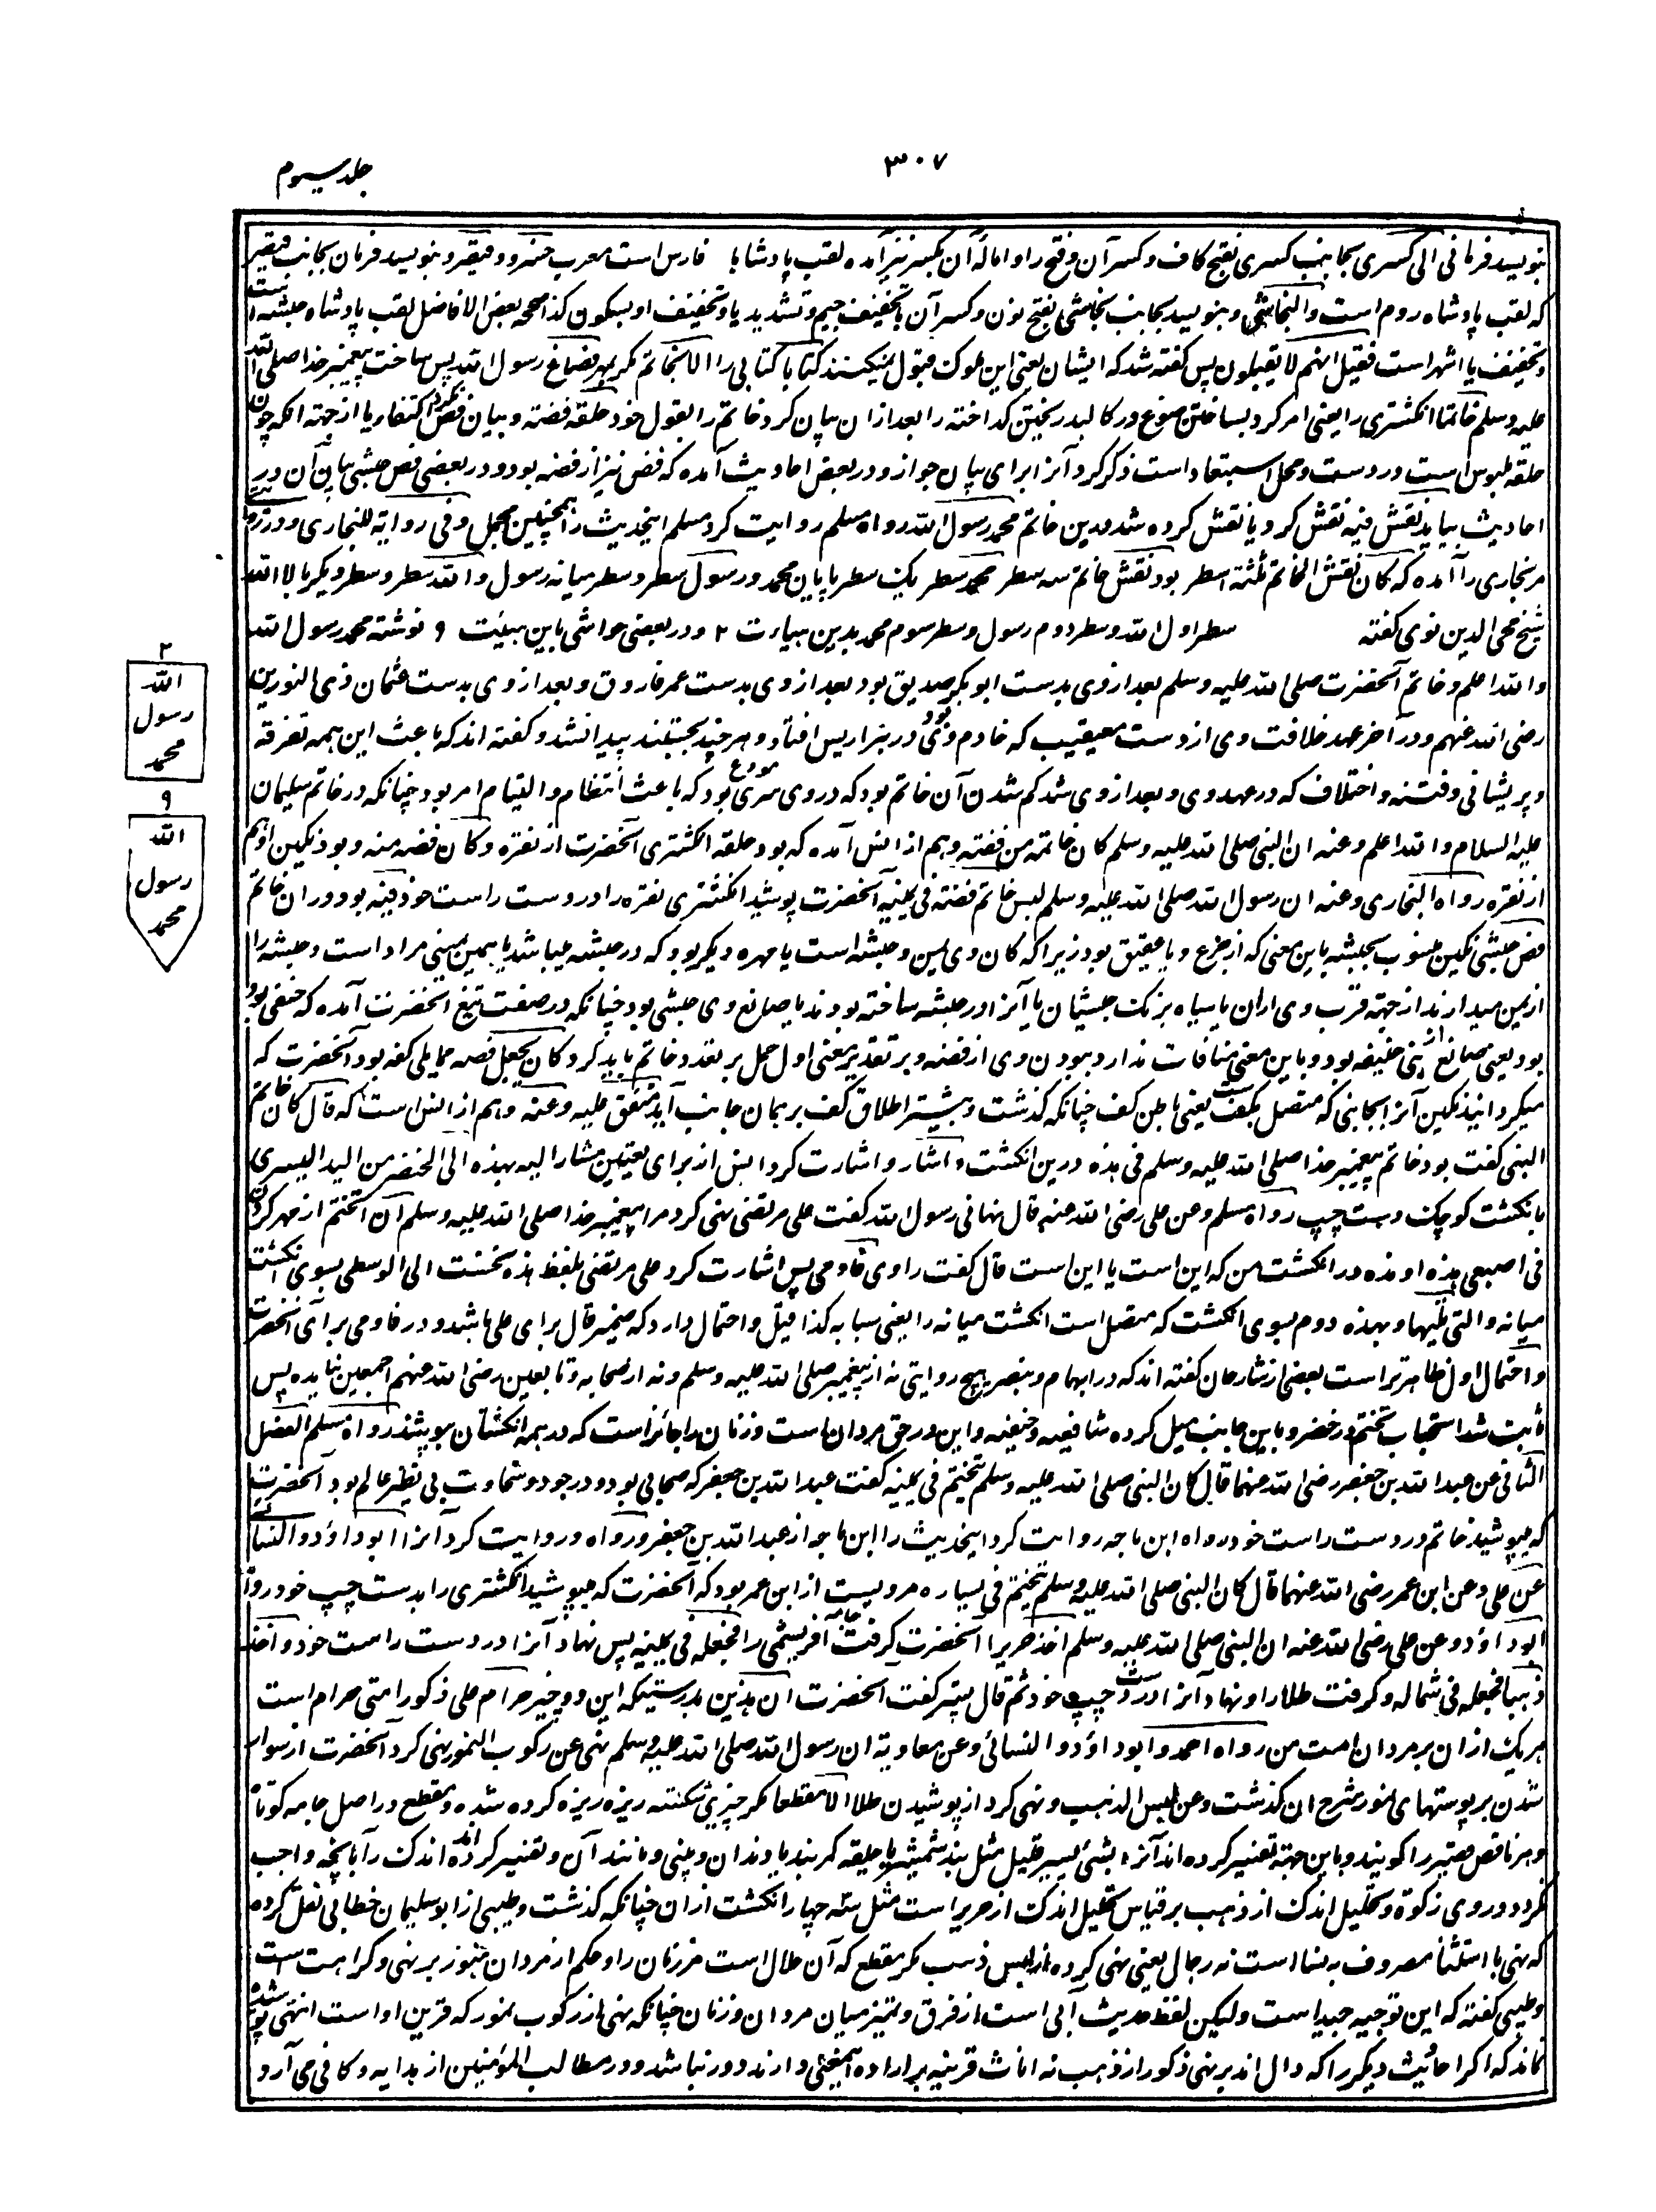 ۳۰۷
جلد سیوم
بنویسد فرمانی الی کسری بجانب کسری بفتح کاف و کسر آن و فتح را و امالهٔ آن بکسر نیز آمده لقب پادشاہا فارس است معرب خسرو و قیصر و بنویسد فرمان بجانب قیصر
که لقب پادشاه روم است والنجاشی و بنویسد بجانب نجاشی بفتح نون و کسر آن و تخفیف جیم و تشدید یا و تخفیف او بسکون کذا صححه بعض الافاضل لقب پادشاه حبشه است
و تخفیف یا اشهر است فقیل انهم لا یقبلون پس گفته شد که ایشان یعنی این ملوک قبول نمیکنند کتابا کتابی را الا بخاتم مگر بمهر فصاغ رسول الله پس ساخت پیغمبر خدا صلی الله
علیه وسلم خاتما انگشتری را یعنی امر کرد بساختن صوغ در کالبد ریختن گداخته را بعد ازان بیان کرد خاتم را بقول خود حلقة فضة و بیان فص نکرد اکتفا و یا از جهته آنکه چون
حلقه ملبوس است در دست و محل استبعاد است ذکر کرد آنرا برای بیان جواز و در بعض احادیث آمده که فص نیز از فضه بود و در بعضی فص حبشی بیان آن در
احادیث بیاید نقش فیه نقش کرد یا نقش کرده شد درین خاتم محمد رسول الله رواه مسلم روایت کرد مسلم اینحدیث را همچنین مجمل و فی روایة للبخاری و در روایتی
مر بخاری را آمده که کان نقش الخاتم ثلثة اسطر بود نقش خاتم سه سطر محمد سطر یک سطر پایان محمد و رسول سطر و سطر میانه رسول و الله سطر و سطر دیگر بالا الله
شیخ محی الدین نووی گفته سطر اول الله و سطر دوم رسول و سطر سوم محمد بدین هیاءت ۲ و در بعضی حواشی باین هیئت ۹ نوشته محمد رسول الله
والله اعلم و خاتم آنحضرت صلی الله علیه وسلم بعد از وی بدست ابوبکر صدیق بود بعد از وی بدست عمر فاروق و بعد از وی بدست عثمان ذی النورین
رضی الله عنهم و در آخر عهد خلافت وی از دست معیقیب که خادم وی بود در بئر اریس افتاد و هر چند بجستند پیدا نشد و گفته اند که باعث این همه تفرقه
و پریشانی و فتنه و اختلاف که در عهد وی و بعد از وی شد گم شدن آن خاتم بود که در وی سری مودع بود که باعث انتظام و التیام امر بود چنانکه در خاتم سلیمان
علیه السلام والله اعلم وعنه ان النبی صلی الله علیه وسلم کان خاتمه من فضة و هم از انس آمده که بود حلقه انگشتری آنحضرت از نقره و کان فصه منه و بود نگین او هم
از نقره رواه البخاری وعنه ان رسول الله صلی الله علیه وسلم لبس خاتم فضة فی یمینه آنحضرت پوشید انگشتری نقره را در دست راست خود فیه بود در ان خاتم
فص حبشی نگین منسوب بحبشه باین معنی که از جزع و یا عقیق بود زیرا که کان وی یمن و حبشه است یا مهره دیگر بود که در حبشه میباشد یا بهمین یمنی مراد است و حبشه را
از یمن میدارند از جهته قرب وی ازان یا سیاه برنگ حبشیان یا آنرا در حبشه ساخته بودند یا صانع وی حبشی بود چنانکه در صفت تیغ آنحضرت آمده که حنفی بود
بود یعنی صانع از بنی حنیفه بود و باین معنی منافات ندارد ببودن وی از فضه و بر تقدیر معنی اول حمل بر تعدد خاتم باید کرد و کان یجعل فصه مما یلی کفه بود آنحضرت که
میگردانید نگین آنرا بجانبی که متصل بکف است یعنی باطن کف چنانکه گذشت و بیشتر اطلاق کف بر همان جانب آید متفق علیه وعنه و هم از انس است که قال کان خاتم
النبی گفت بود خاتم پیغمبر خدا صلی الله علیه وسلم فی هذه درین انگشت و اشار و اشارت کرد انس از برای تعیین مشار الیه بهذه الی الخنصر من الید الیسری
بانگشت کوچک دست چپ رواه مسلم وعن علی رضی الله عنه قال نهانی رسول الله گفت علی مرتضی نهی کرد مرا پیغمبر خدا صلی الله علیه وسلم ان اتختم از مهر کردن
فی اصبعی هذه او هذه در انگشت من که این است یا این است قال گفت راوی فاومی پس اشارت کرد علی مرتضی بلفظ هذه نخست الی الوسطی بسوی انگشت
میانه والتی تلیها و بهذه دوم بسوی انگشت که متصل است انگشت میانه را یعنی سبابه کذا قیل و احتمال دارد که ضمیر قال برای علی باشد و در فاومی برای آنحضرت
و احتمال اول ظاهرتر است بعضی از شارحان گفته اند که در ابهام و بنصر هیچ روایتی نه از پیغمبر صلی الله علیه وسلم و نه از صحابه و تابعین رضی الله عنهم اجمعین نیامده پس
ثابت شد استحباب تختم در خنصر و باین جانب میل کرده شافعیه و حنفیه و این در حق مردان است و زنان را جائز است که در همه انگشتان بپوشند رواه مسلم الفصل
الثانی عن عبد الله بن جعفر رضی الله عنهما قال کان النبی صلی الله علیه وسلم یتختم فی یمینه گفت عبد الله بن جعفر که صحابی بود و در جود و سخاوت بی نظیر عالم بود آنحضرت
که میپوشید خاتم در دست راست خود رواه ابن ماجه روایت کرد اینحدیث را ابن ماجه از عبد الله بن جعفر و رواه و روایت کرد آنرا ابو داؤد و النسائی
عن علی وعن ابن عمر رضی الله عنهما قال کان النبی صلی الله علیه وسلم یتختم فی یساره مرویست از ابن عمر بود که آنحضرت که میپوشید انگشتری را بدست چپ خود رواه
ابو داؤد وعن علی رضی الله عنه ان النبی صلی الله علیه وسلم اخذ حریرا آنحضرت گرفت جامه ابریشمی را فجعله فی یمینه پس نهاد آنرا در دست راست خود و اخذ
ذهبا فجعله فی شماله و گرفت طلا را و نهاد آنرا در دست چپ خود ثم قال پستر گفت آنحضرت ان هذین بدرستیکه این دو چیز حرام علی ذکور امتی حرام است
هر یک ازان بر مردان امت من رواه احمد و ابو داؤد و النسائی وعن معاویة ان رسول الله صلی الله علیه وسلم نهی عن رکوب النمور نهی کرد آنحضرت از سوار
شدن بر پوستهای نمور شرح ان گذشت وعن لبس الذهب و نهی کرد از پوشیدن طلا الا مقطعا مگر چیزی شکسته ریزه ریزه کرده شده و مقطع در اصل جامه کوتاه
و هر ناقص قصیر را گویند و باین جهته تفسیر کرده اند آنرا بشئ یسیر قلیل مثل بند شمشیر یا حلقه کمربند یا دندان و بینی و مانند آن و تفسیر کرده اند اندک را بآنچه واجب
نگردد در وی زکوة و تحلیل اندک از ذهب بر قیاس تحلیل اندک از حریر است مثل سه چهار انگشت ازان چنانکه گذشت و طیبی از ابو سلیمان خطابی نقل کرده
که نهی با استثنا مصروف به نسا است نه رجال یعنی نهی کرده از لبس ذهب مگر مقطع که آن حلال است مر زنان را و حکم از مردان هنوز بر نهی و کراهت است
و طیبی گفته که این توجیه جید است ولیکن لفظ حدیث آبی است از فرق و تمیز میان مردان و زنان چنانکه نهی از رکوب نمور که قرین او است انتهی پوشیده
نماند که اگر احادیث دیگر را که دال اند بر نهی ذکور از ذهب نه اناث قرینه بر اراده اینمعنی دارند دور نباشد و در مطالب المؤمنین از هدایه و کافی می آرد
۲
الله
رسول
محمد
۹
الله
رسول
محمد